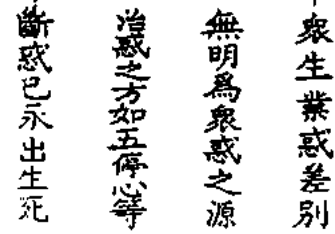 衆生業惑差別
無明爲衆惑之源
治惑之方如五停心等
斷惑已永出生死